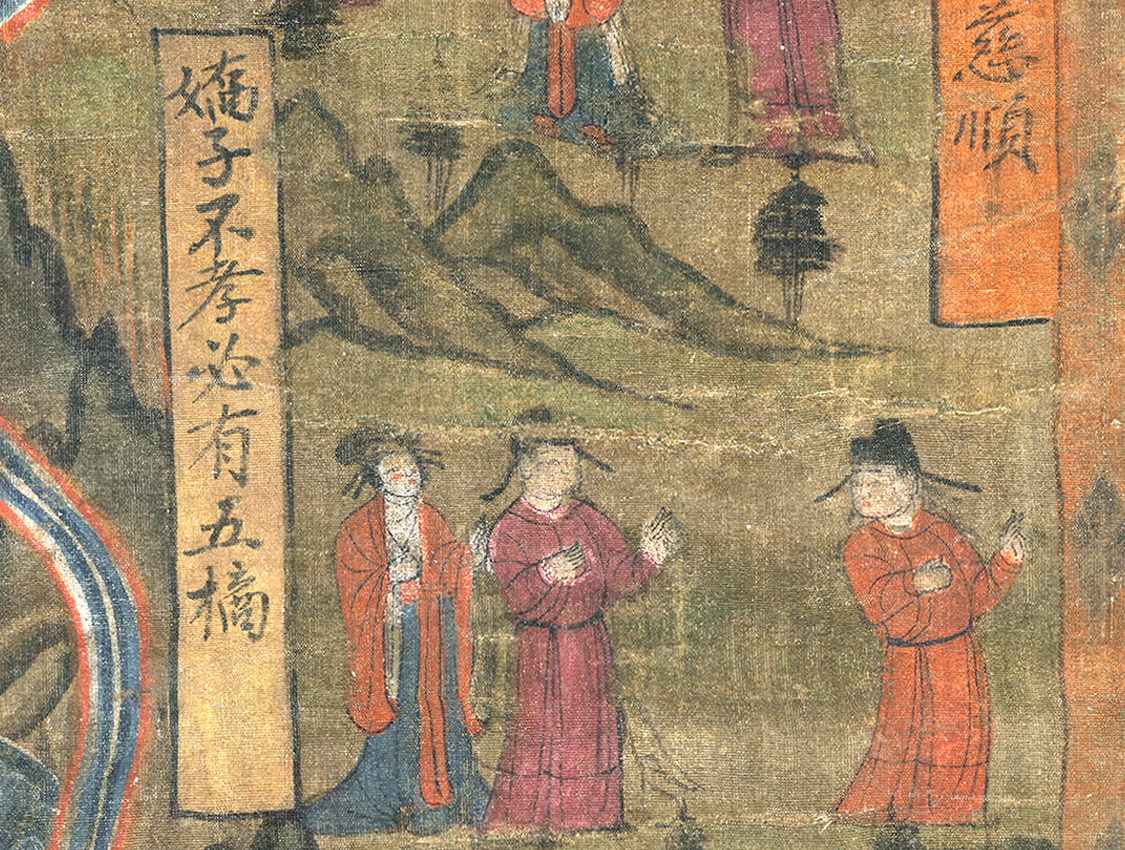 慈順
嬌子不孝必有五摘